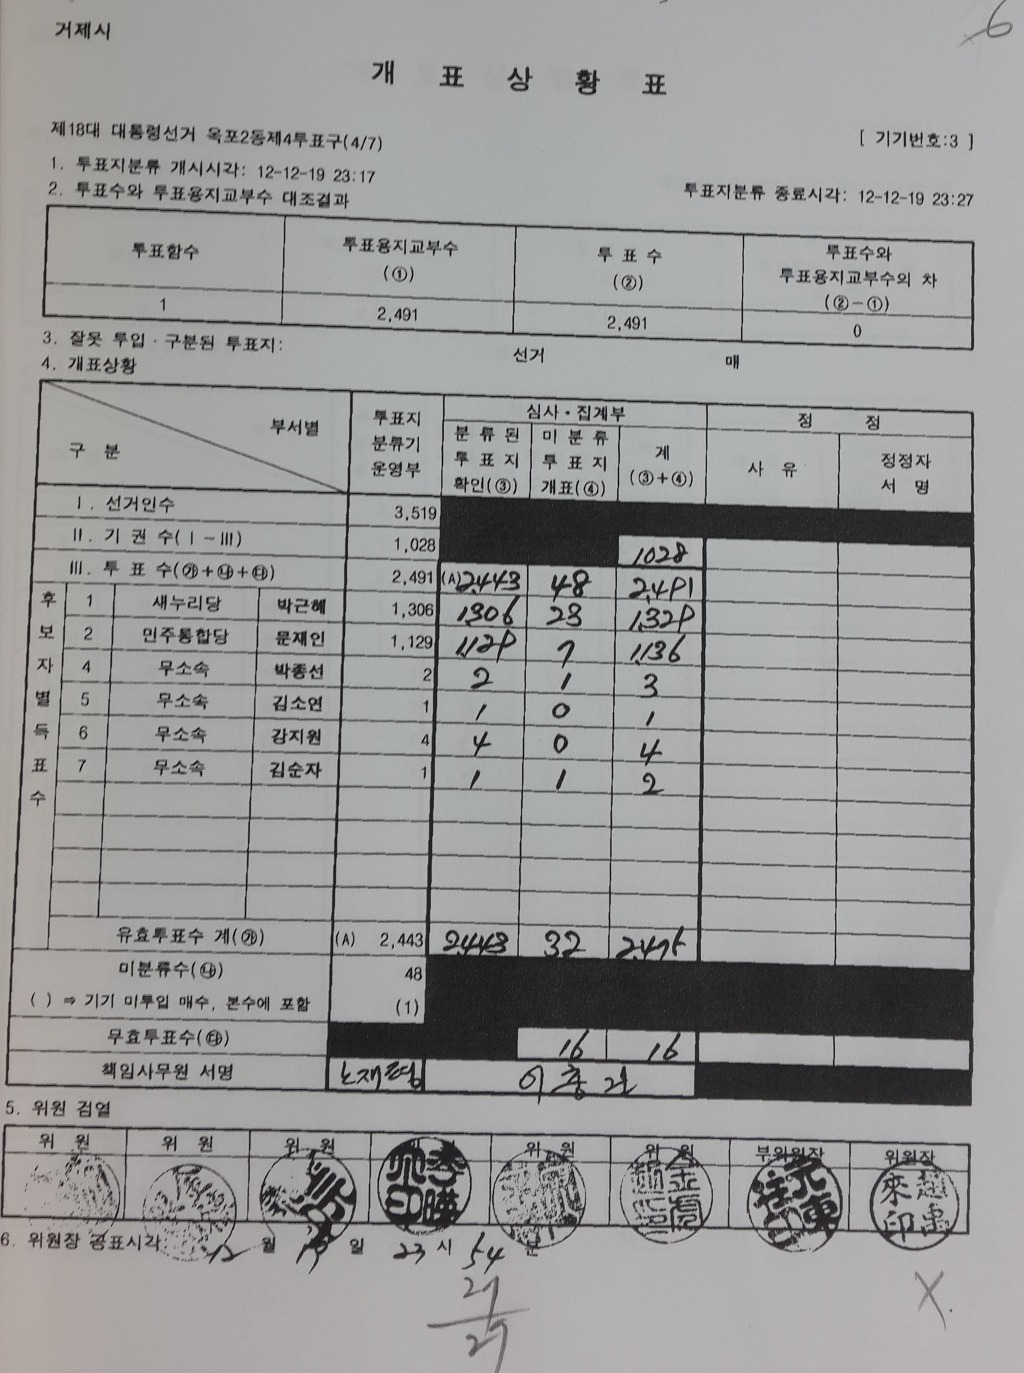 거제시
6
개 표 상 황 표
제18대 대통령선거 옥포2동제4투표구(4/7)
[ 기기번호:3 ]
1. 투표지분류 개시시각: 12-12-19 23:17
투표지분류 종료시각: 12-12-19 23:27
2. 투표수와 투표용지교부수 대조결과
투표함수 투표용지교부수 (①) 투 표 수 (②) 투표수와 투표용지교부수의 차 (②-①)
1 2,491 2,491 0
3. 잘못 투입·구분된 투표지: 선거 매
4. 개표상황
구 분 부서별 투표지 분류기 운영부 심사·집계부 정 정
분 류 된 투 표 지 확인(③) 미 분 류 투 표 지 개표(④) 계 (③+④) 사 유 정정자 서 명
Ⅰ. 선거인수 3,519
Ⅱ. 기 권 수(Ⅰ-Ⅲ) 1,028 1028
Ⅲ. 투 표 수(㉮+㉯+㉰) 2,491 (A) 2,443 48 2,491
후보자별득표수
1 새누리당 박근혜 1,306 1,306 23 1,329
2 민주통합당 문재인 1,129 1,129 7 1,136
4 무소속 박종선 2 2 1 3
5 무소속 김소연 1 1 0 1
6 무소속 강지원 4 4 0 4
7 무소속 김순자 1 1 1 2
유효투표수 계(㉮) (A) 2,443 2,443 32 2,475
미분류수(㉯) 48
( ) ⇒ 기기 미투입 매수, 본수에 포함 (1)
무효투표수(㉰) 16 16
책임사무원 서명
5. 위원 검열
위 원 위 원 위 원 위 원 위 원 부위원장 위원장
6. 위원장 공표시각 12 월 19 일 23 시 54 분
X.